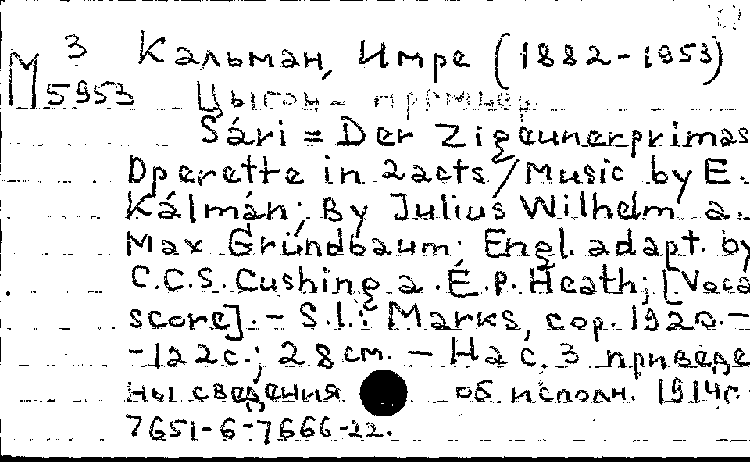 3 Кальман, Имре (1882-1953)
М 5953 Цыган-премьер
Sári = Der Zigeunerprimas
Operette in 2acts / Music by E.
Kálmán; By Julius Wilhelm a.
Max Gründbaum; Engl. adapt. by
C.C.S. Cushing a. É.P. Heath; [Voca
score]. - S.l.: Marks, cop. 1920. -
-122с.; 28cm. - На с. 3 приведе
ны сведения об исполн. 1914г.
7651-6-7666-22.